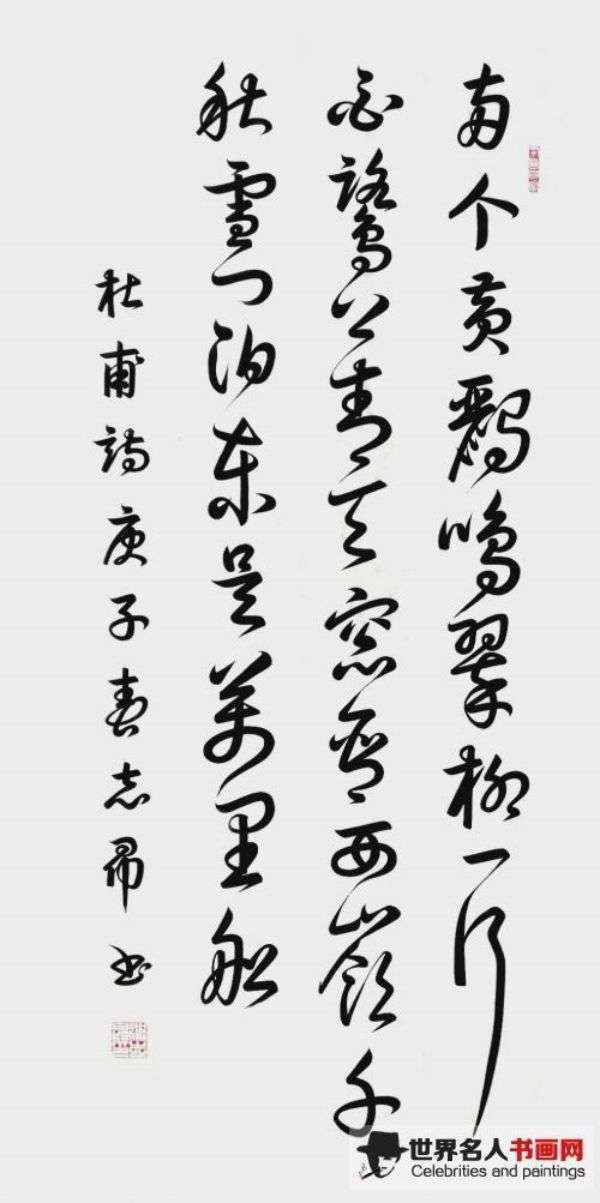 両个黄鸝鳴翠柳一行
白鷺上青天窓含西嶺千
秋雪门泊東吳萬里船
杜甫詩庚子春志书
世界名人书画网
Celebrities and paintings